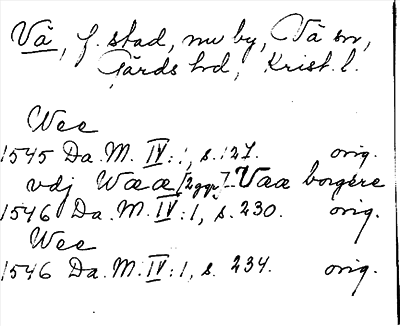 Vä, f. stad, nu by, Vä sn,
Gärds hd, Krist. l.
Wee
1545 Da. M. IV: 1, s. 127. orig.
vdj Wæa [2 ggr] - Vaa borgere
1546 Da. M. IV: 1, s. 230. orig.
Wee
1546 Da. M. IV: 1, s. 234. orig.